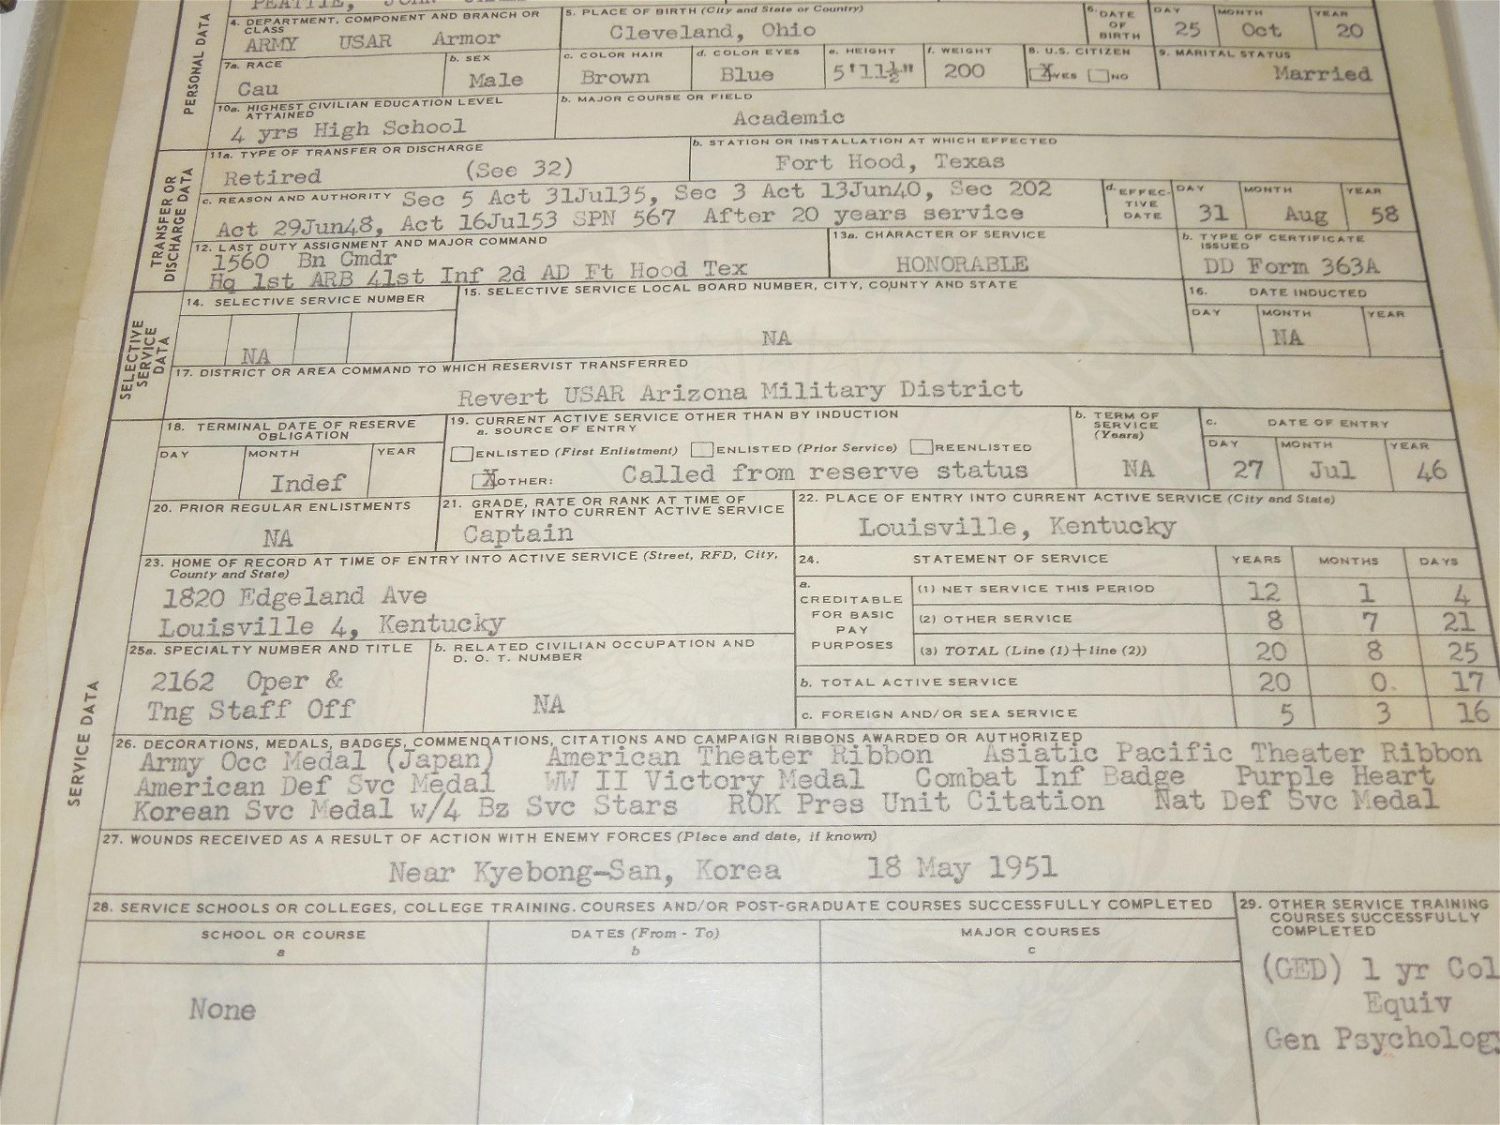 PERSONAL DATA
4. DEPARTMENT, COMPONENT AND BRANCH OR CLASS
ARMY USAR Armor
5. PLACE OF BIRTH (City and State or Country)
Cleveland, Ohio
6. DATE OF BIRTH
DAY MONTH YEAR
25 Oct 20
7a. RACE
Cau
b. SEX
Male
c. COLOR HAIR
Brown
d. COLOR EYES
Blue
e. HEIGHT
5'11½"
f. WEIGHT
200
8. U.S. CITIZEN
X YES NO
9. MARITAL STATUS
Married
10a. HIGHEST CIVILIAN EDUCATION LEVEL ATTAINED
4 yrs High School
b. MAJOR COURSE OR FIELD
Academic
TRANSFER OR DISCHARGE DATA
11a. TYPE OF TRANSFER OR DISCHARGE
Retired (See 32)
b. STATION OR INSTALLATION AT WHICH EFFECTED
Fort Hood, Texas
c. REASON AND AUTHORITY Sec 5 Act 31Jul35, Sec 3 Act 13Jun40, Sec 202
Act 29Jun48, Act 16Jul53 SPN 567 After 20 years service
d. EFFECTIVE DATE
DAY MONTH YEAR
31 Aug 58
12. LAST DUTY ASSIGNMENT AND MAJOR COMMAND
1560 Bn Cmdr
Hq 1st ARB 41st Inf 2d AD Ft Hood Tex
13a. CHARACTER OF SERVICE
HONORABLE
b. TYPE OF CERTIFICATE ISSUED
DD Form 363A
SELECTIVE SERVICE DATA
14. SELECTIVE SERVICE NUMBER
NA
15. SELECTIVE SERVICE LOCAL BOARD NUMBER, CITY, COUNTY AND STATE
NA
16. DATE INDUCTED
DAY MONTH YEAR
NA
17. DISTRICT OR AREA COMMAND TO WHICH RESERVIST TRANSFERRED
Revert USAR Arizona Military District
SERVICE DATA
18. TERMINAL DATE OF RESERVE OBLIGATION
DAY MONTH YEAR
Indef
19. CURRENT ACTIVE SERVICE OTHER THAN BY INDUCTION
a. SOURCE OF ENTRY
ENLISTED (First Enlistment) ENLISTED (Prior Service) REENLISTED
X OTHER: Called from reserve status
b. TERM OF SERVICE (Years)
NA
c. DATE OF ENTRY
DAY MONTH YEAR
27 Jul 46
20. PRIOR REGULAR ENLISTMENTS
NA
21. GRADE, RATE OR RANK AT TIME OF ENTRY INTO CURRENT ACTIVE SERVICE
Captain
22. PLACE OF ENTRY INTO CURRENT ACTIVE SERVICE (City and State)
Louisville, Kentucky
23. HOME OF RECORD AT TIME OF ENTRY INTO ACTIVE SERVICE (Street, RFD, City, County and State)
1820 Edgeland Ave
Louisville 4, Kentucky
24. STATEMENT OF SERVICE YEARS MONTHS DAYS
a. CREDITABLE FOR BASIC PAY PURPOSES
(1) NET SERVICE THIS PERIOD 12 1 4
(2) OTHER SERVICE 8 7 21
(3) TOTAL (Line (1)+line (2)) 20 8 25
b. TOTAL ACTIVE SERVICE 20 0. 17
c. FOREIGN AND/OR SEA SERVICE 5 3 16
25a. SPECIALTY NUMBER AND TITLE
2162 Oper &
Tng Staff Off
b. RELATED CIVILIAN OCCUPATION AND D. O. T. NUMBER
NA
26. DECORATIONS, MEDALS, BADGES, COMMENDATIONS, CITATIONS AND CAMPAIGN RIBBONS AWARDED OR AUTHORIZED
Army Occ Medal (Japan) American Theater Ribbon Asiatic Pacific Theater Ribbon
American Def Svc Medal WW II Victory Medal Combat Inf Badge Purple Heart
Korean Svc Medal w/4 Bz Svc Stars ROK Pres Unit Citation Nat Def Svc Medal
27. WOUNDS RECEIVED AS A RESULT OF ACTION WITH ENEMY FORCES (Place and date, if known)
Near Kyebong-San, Korea 18 May 1951
28. SERVICE SCHOOLS OR COLLEGES, COLLEGE TRAINING. COURSES AND/OR POST-GRADUATE COURSES SUCCESSFULLY COMPLETED
SCHOOL OR COURSE
a
DATES (From - To)
b
MAJOR COURSES
c
None
29. OTHER SERVICE TRAINING COURSES SUCCESSFULLY COMPLETED
(GED) 1 yr Col
Equiv
Gen Psycholog